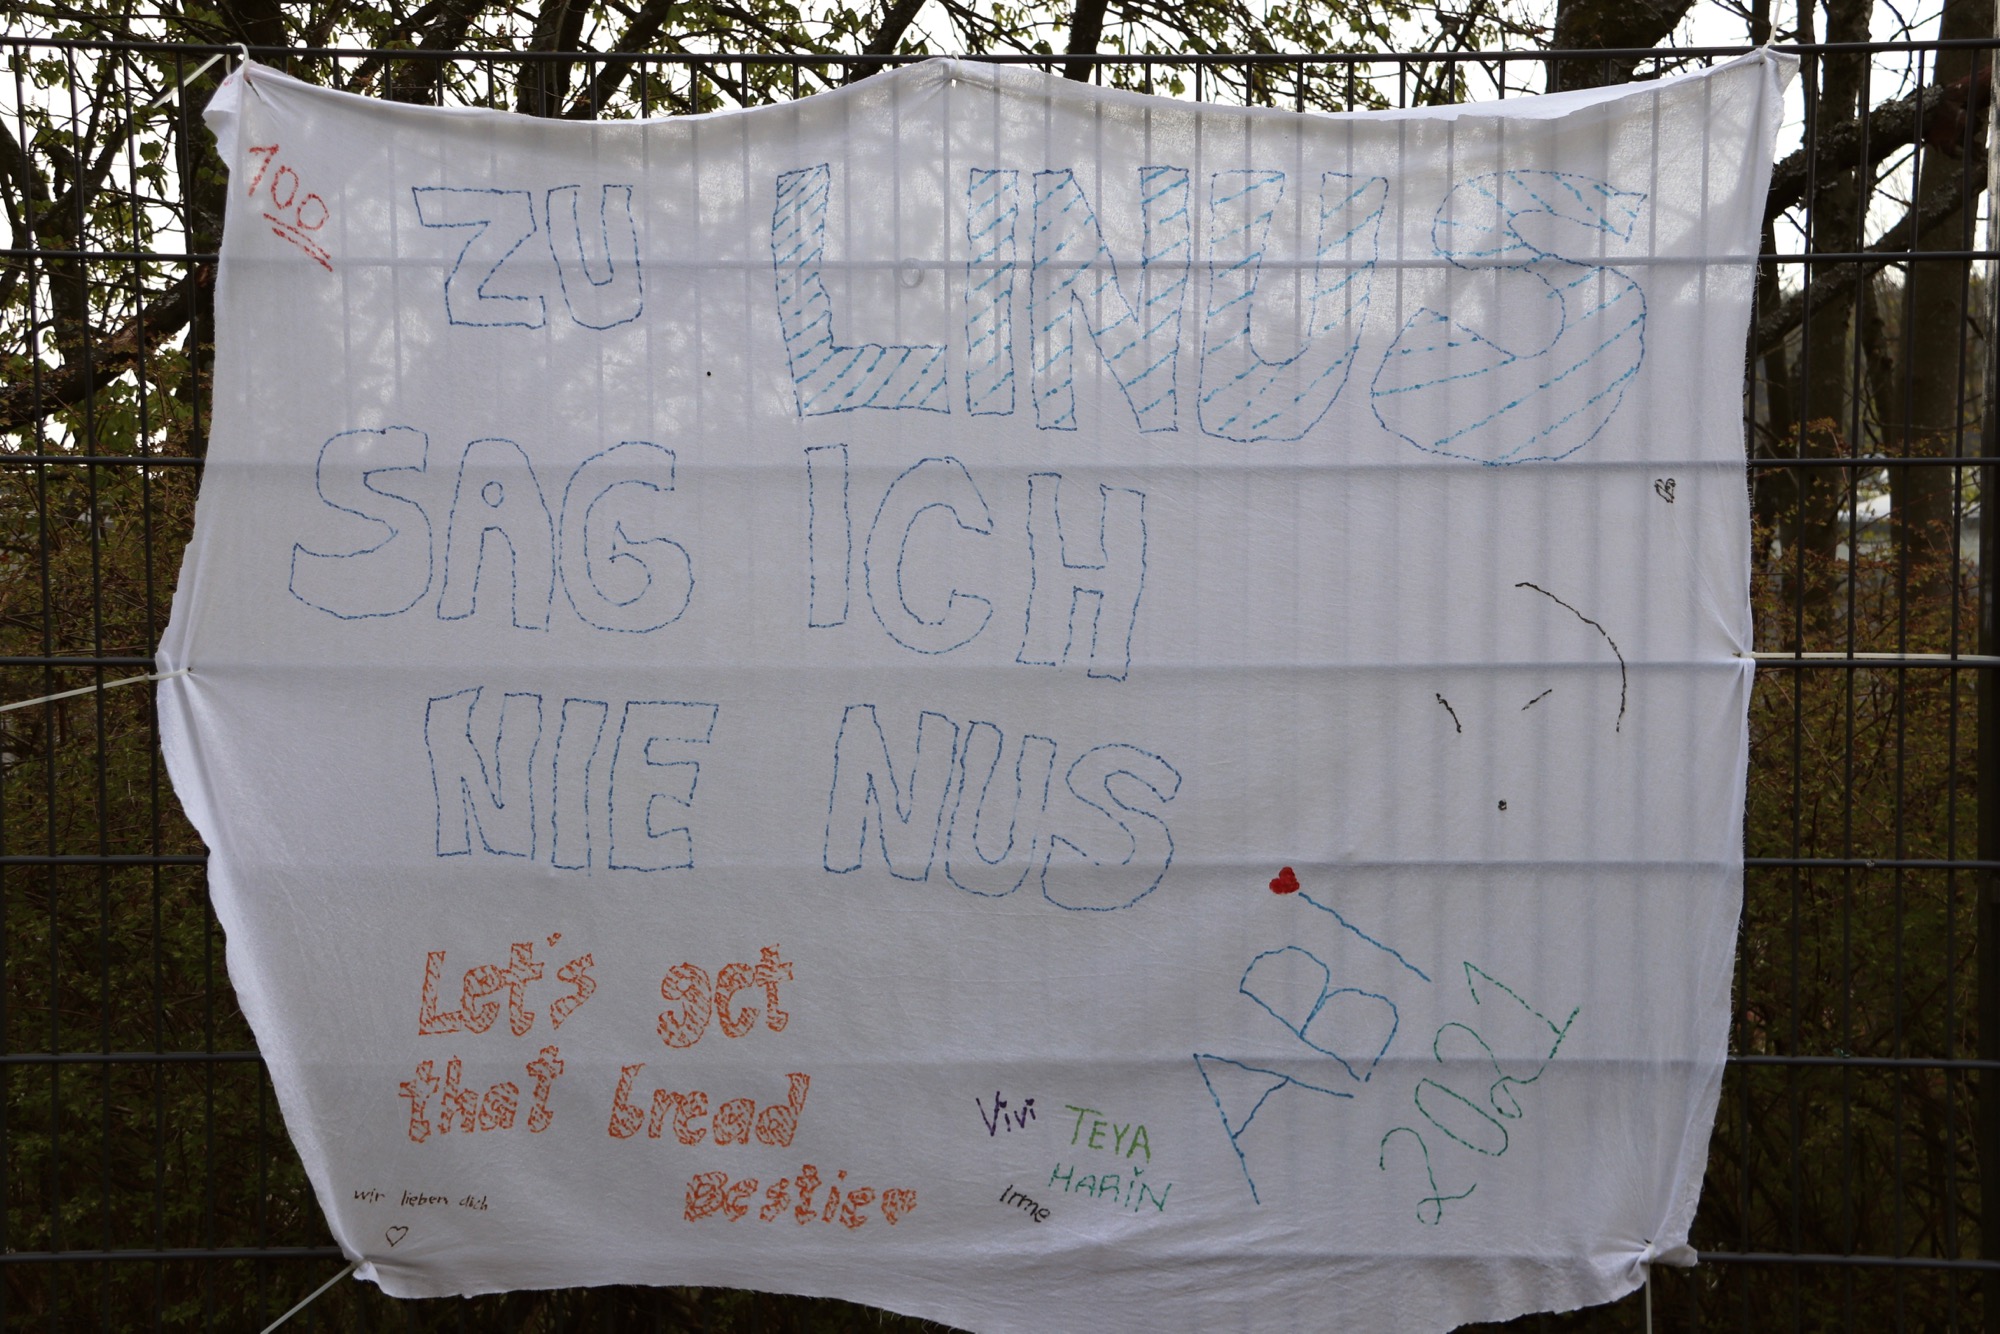 100
ZU LINUS
SAG ICH
NIE NUS
Let's get
that bread
Bestier
wir lieben dich
Vivi
TEYA
HARIN
irme
ABI
2021